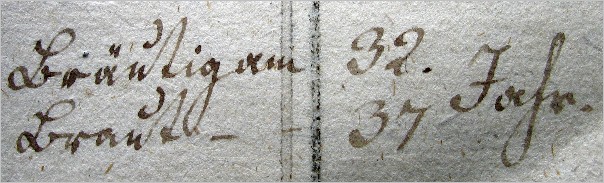 Bräutigam 32. Jahr.
Braut – – 37